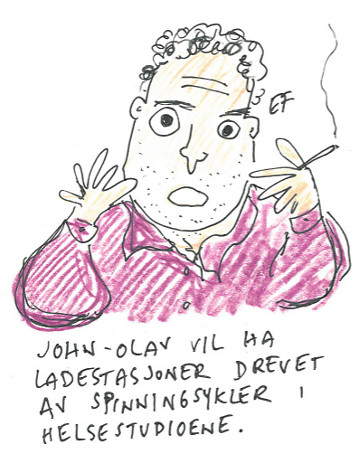 EF
JOHN-OLAV VIL HA
LADESTASJONER DREVET
AV SPINNINGSYKLER I
HELSESTUDIOENE.